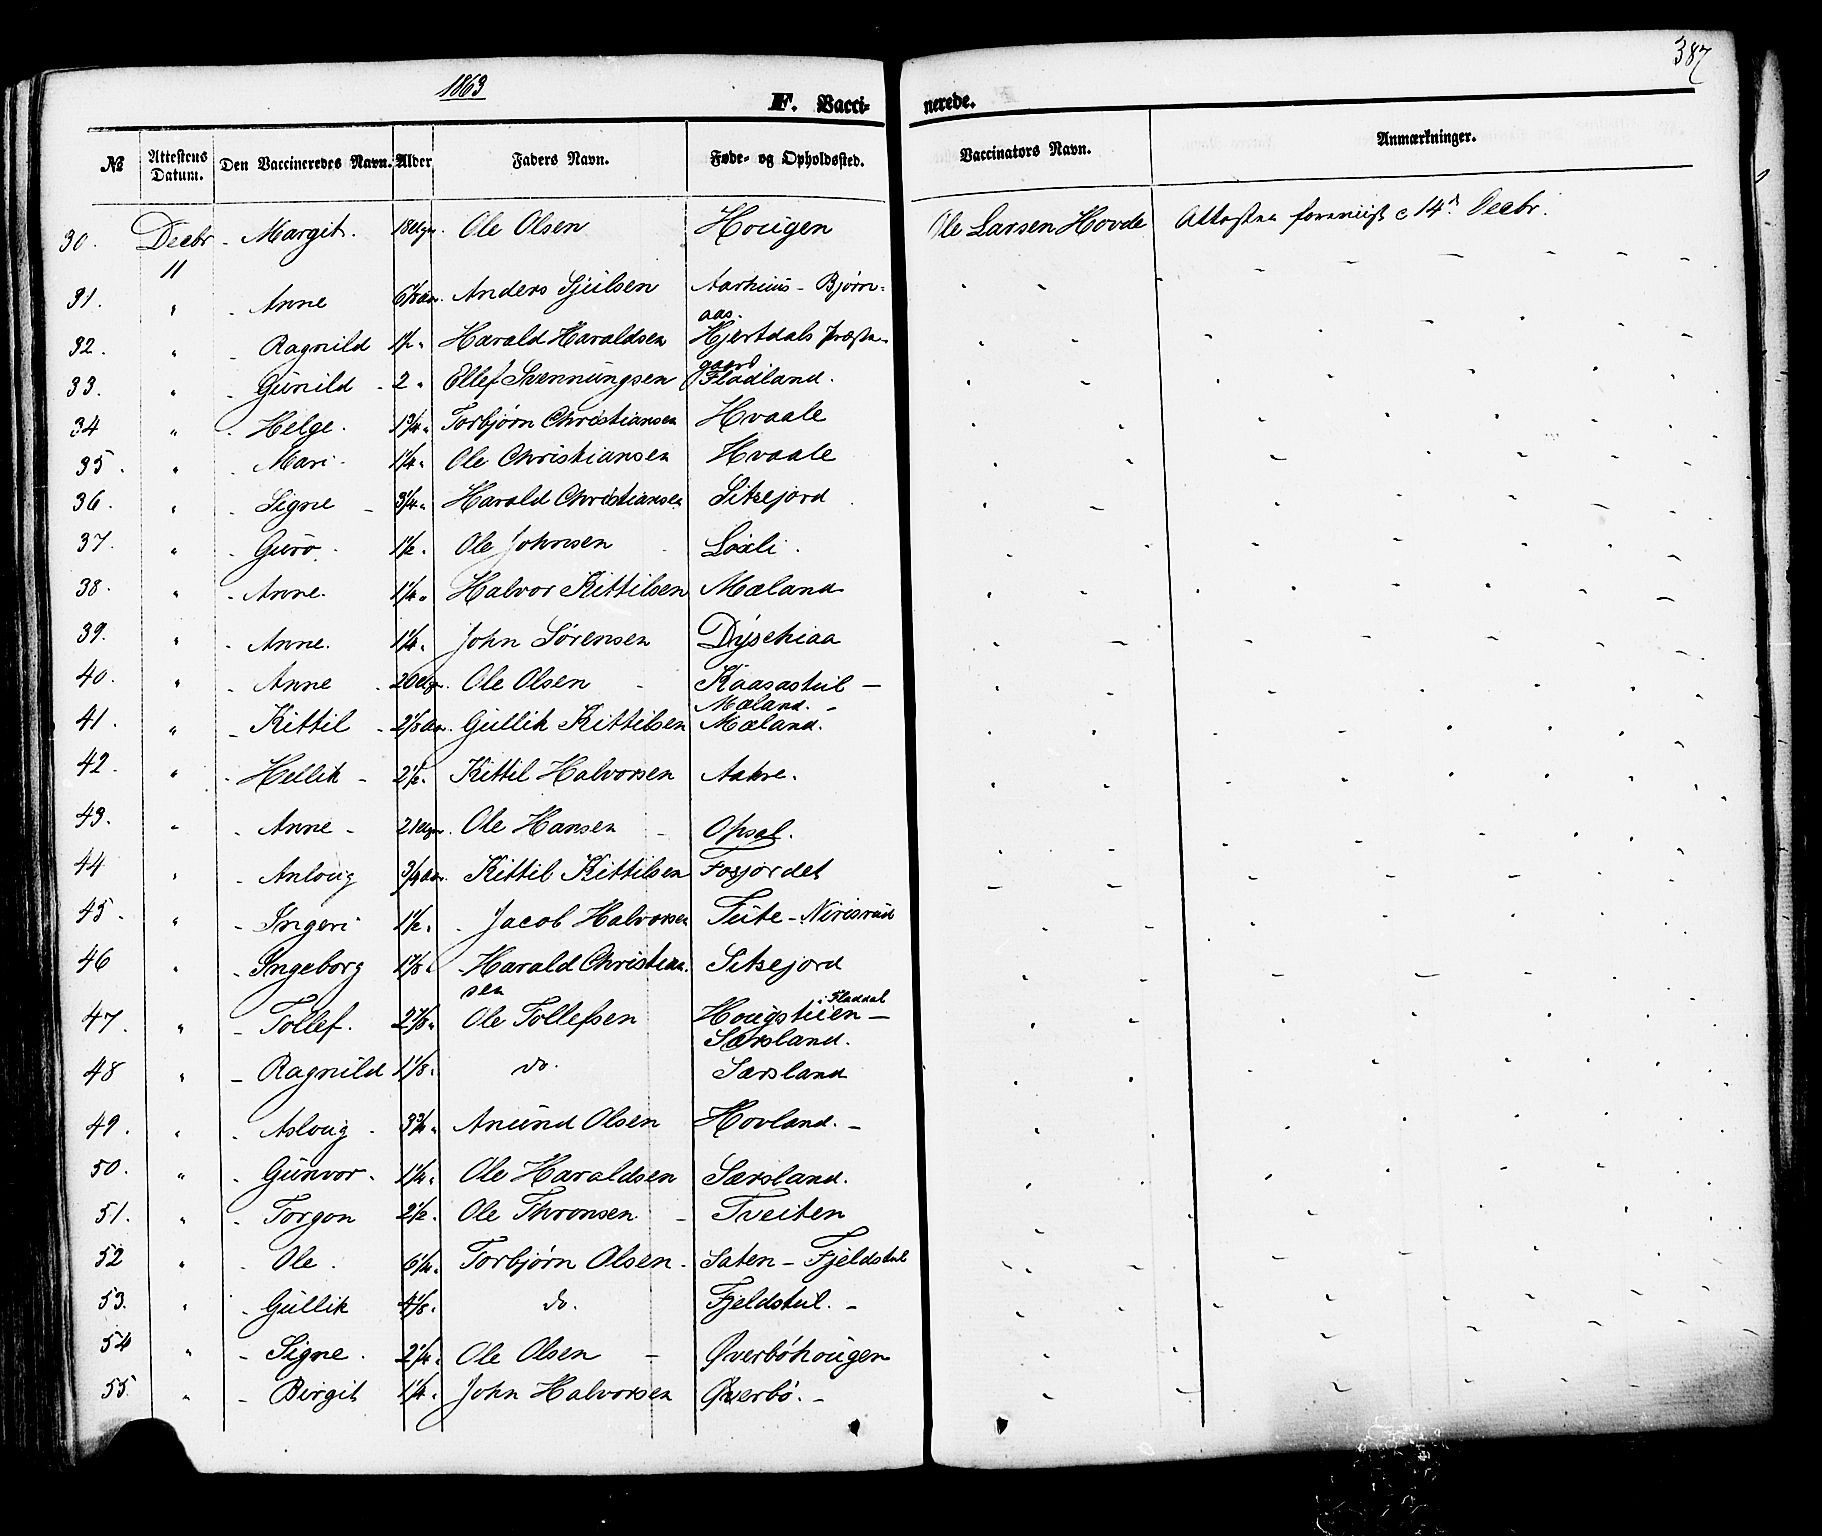 1863
387
F. Vacci- nerede.
№ Attestens Datum. Den Vaccineredes Navn. Alder Faders Navn. Føde- og Opholdssted. Vaccinators Navn. Anmærkninger.
30. Decbr 11 - Margit. Ole Olsen Hougen Ole Larsen Hovde 14de Decbr.
31. " - Anne Anders Sjulsen Aarhuus - Bjørn-
aas.
32. " - Ragnild 1½ " Harald Haraldsen Hjertdals Præste-
gaard
33. " - Gunild - 2 " Ellef Svennungsen Fladland.
34 " - Helge. 1¾ " Torbjørn Christiansen Hvaale
35. " - Mari - 1¼ " Ole Christiansen Hvaale
36. " - Signe - 3¼ " Harald Christiansen Sitsejord
37. " - Guro. 1½ " Ole Johnsen Løxli.
38. " - Anne. 1¼ " Halvor Kittilsen Mæland
39. " - Anne. 1¼ " John Sørensen Dyschiaa
40. " - Anne - Ole Olsen - Kaasastul -
Mæland. -
41. " - Kittil - 2⅛ Aar. Gullik Kittilsen Mæland.
42. " - Hellik - 2½ " Kittil Halvorsen Aakre.
43. " - Anne - Ole Hansen - Opsal.
44 " - Anloug ¾ Aar. Kittil Kittilsen Fosjordet
45. " - Ingeri 1½ " - Jacob Halvorsen Tute - Nirisrud
46 " - Ingeborg 1⅞ " - Harald Christian-
sen Sitsejord
47. " - Tollef. 2⅞ " Ole Tollefsen Hougstuen - i Fladdal
Særsland.
48 " - Ragnild 1⅛ " do. Særsland
49. " - Asloug - 3¾ " Anund Olsen Hovland. -
50. " - Gunvor. 1¼ " Ole Haraldsen Særsland.
51. " - Torgon 2½ " Ole Thronsen - Tveiten
52 " - Ole. 6¼ " Torbjørn Olsen - Saten - Fjeldstul
53. " - Gullik 4⅛ " do. Fjeldstul. -
54 " - Signe. 2¼ " Ole Olsen - Øverbøhougen
55. " - Birgit 1¼ " John Halvorsen Øverbø. -